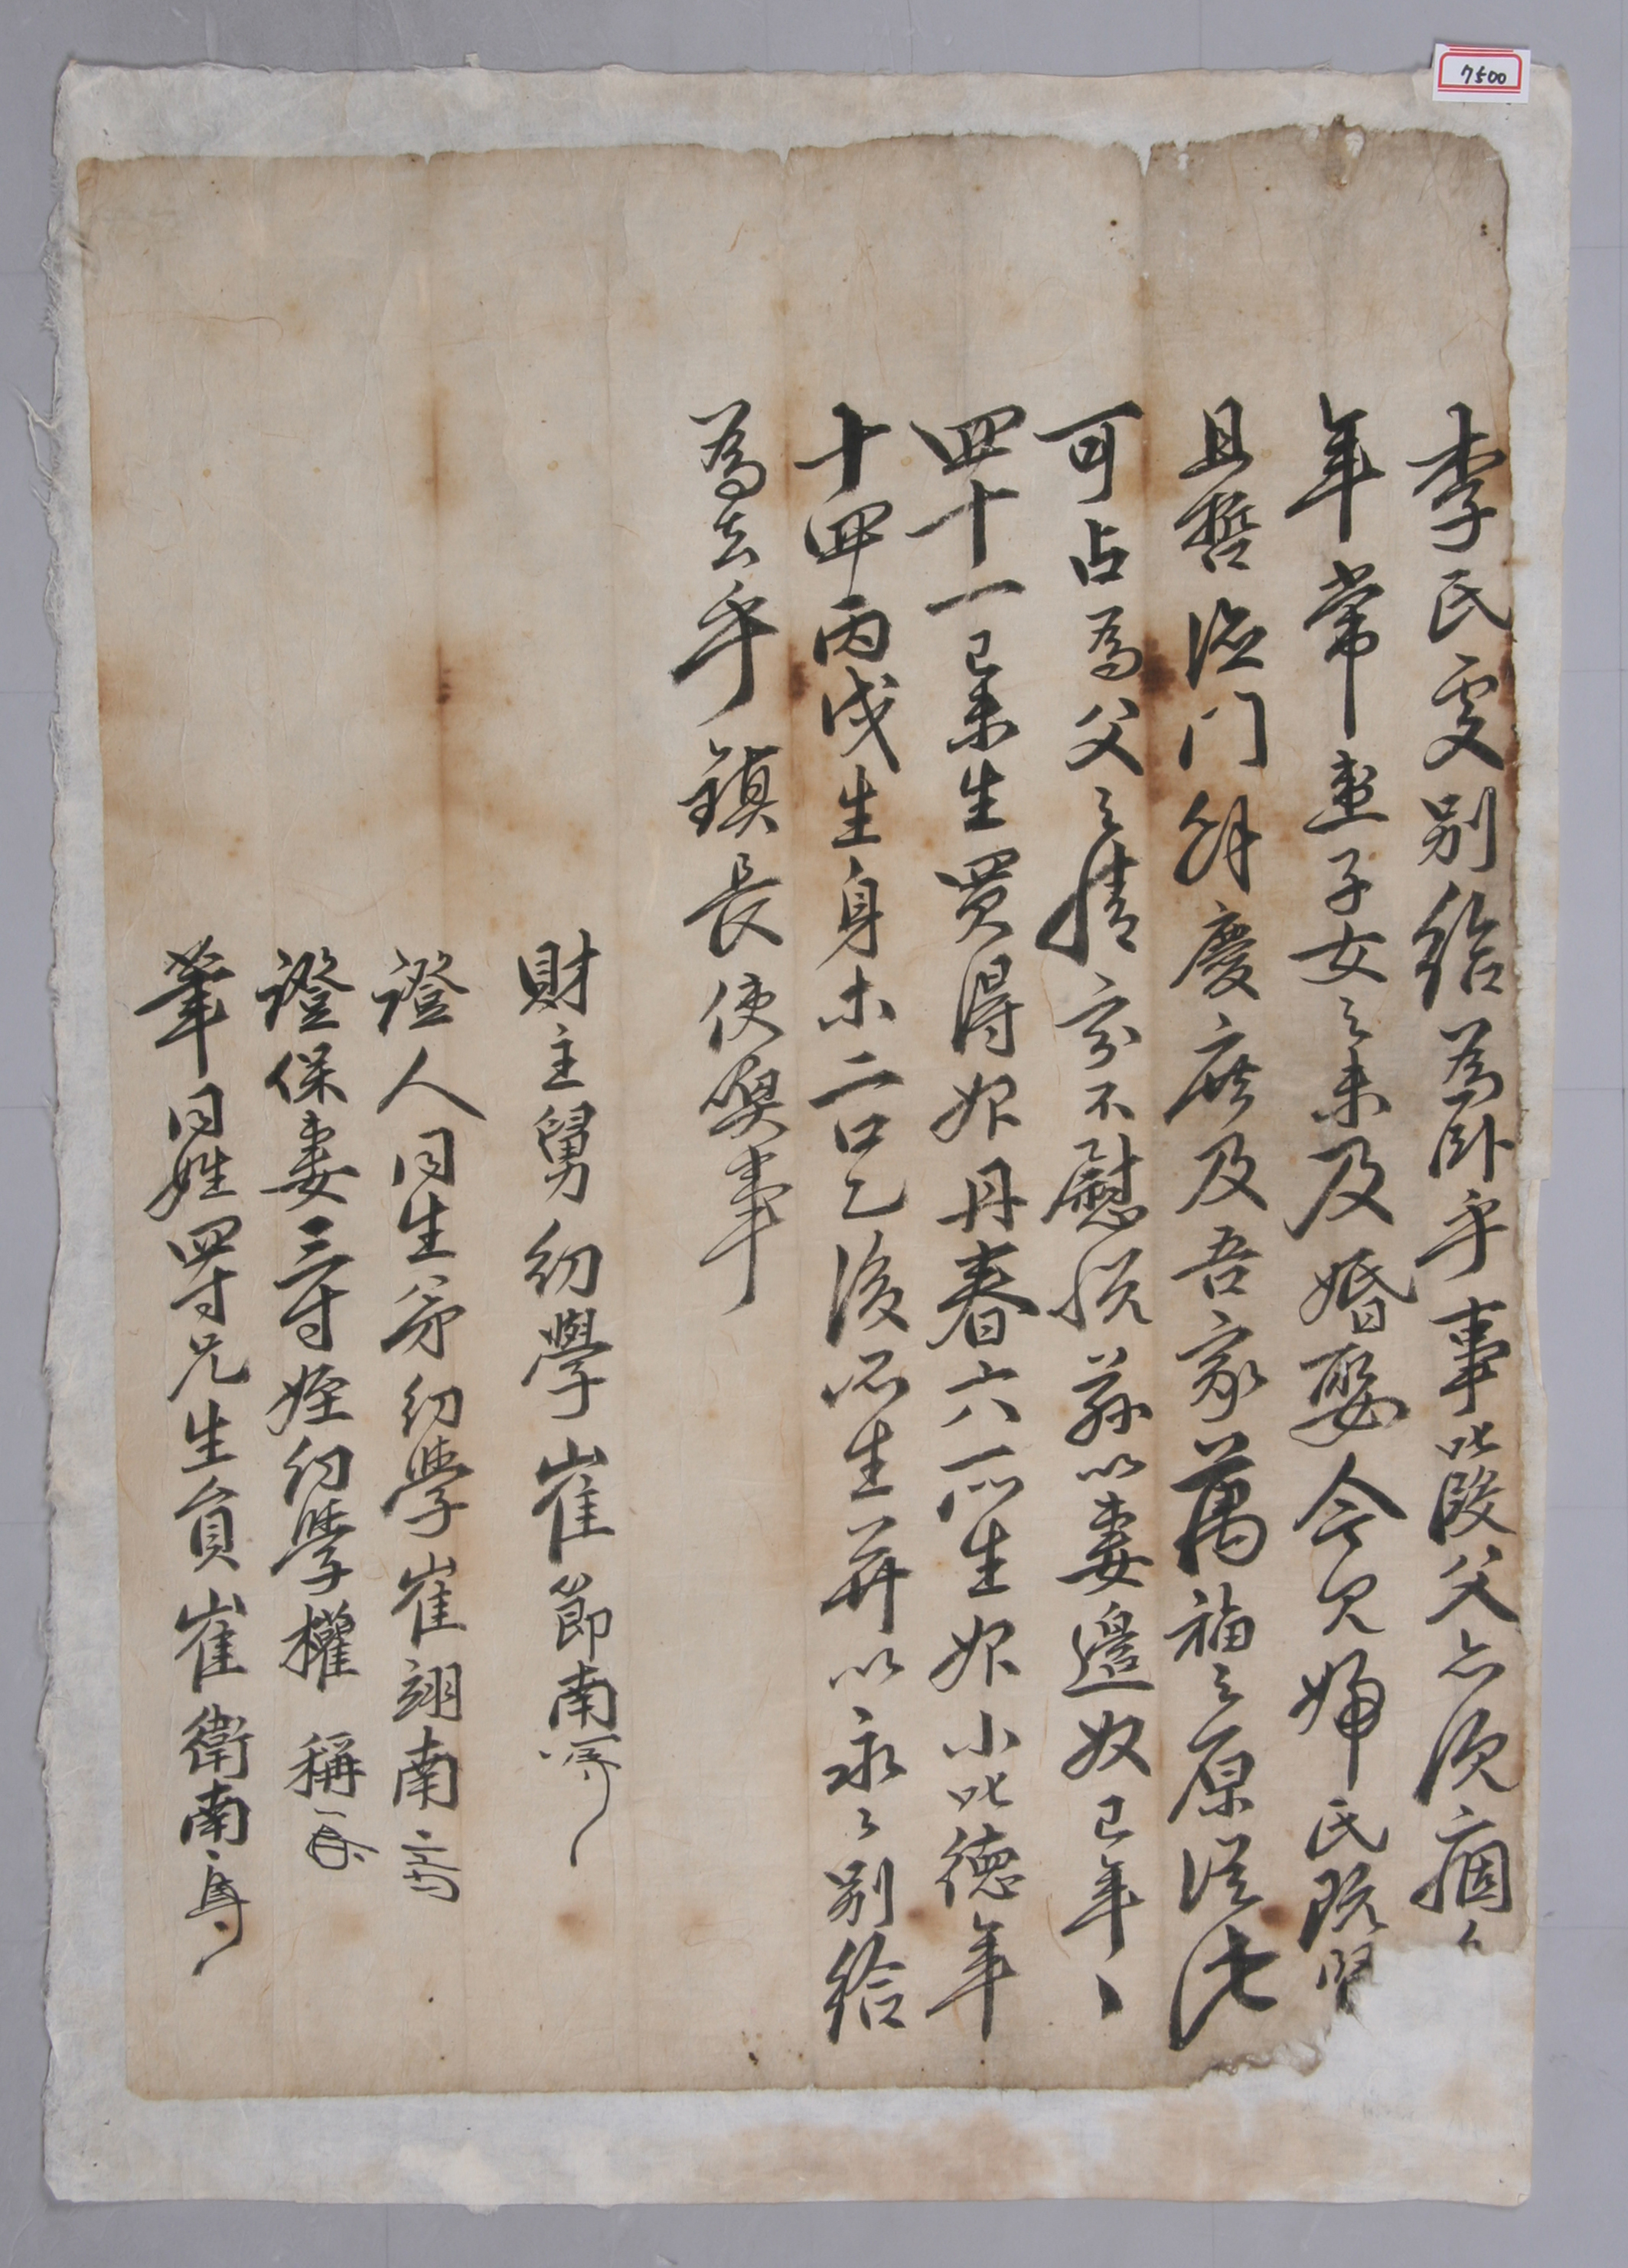 7500
李氏處別給爲臥乎事叱段父亦須痼
年常患子女之未及婚娶今見婦氏旣賢
且哲法门餘慶庶及吾家萬福之原從此
可占爲父之情豈不慰悅茲以妻邊奴己年
四十一己未生買得婢丹春六所生婢小叱德年
十四丙戌生身木二口乙後所生并以永〻別給
爲去乎鎮長使喚事
財主舅幼學崔節南
證人同生弟幼學崔翊南
證保妻三寸姪幼學權稱
筆同姓四寸兄生員崔衛南